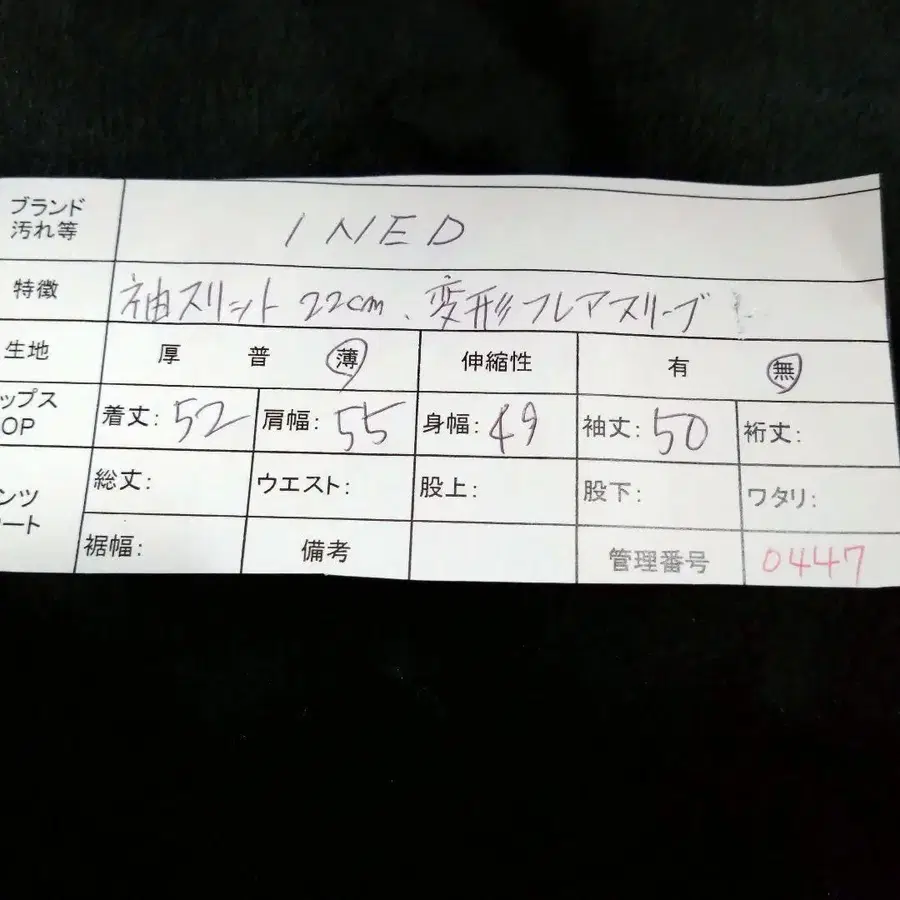 ブランド
汚れ等
INED
特徴
袖スリット 22cm、変形フレアスリーブ
生地
厚 普 薄
伸縮性
有 無
ップス
OP
着丈: 52
肩幅: 55
身幅: 49
袖丈: 50
裄丈:
ンツ
ート
総丈:
ウエスト:
股上:
股下:
ワタリ:
裾幅:
備考
管理番号
0447